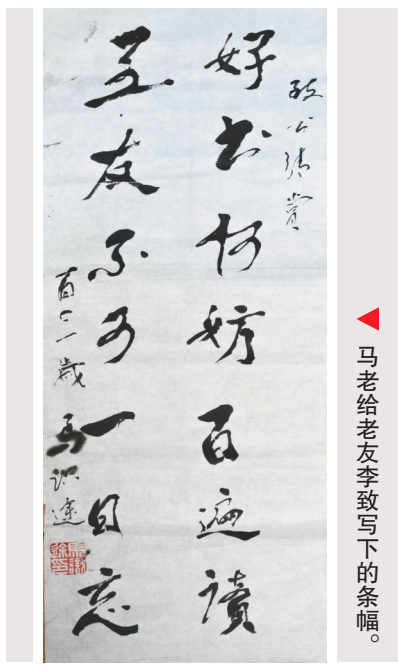 致公清賞
好书何妨百遍讀
益友不可一日忘
百〇一歲 马识途
马老给老友李致写下的条幅。